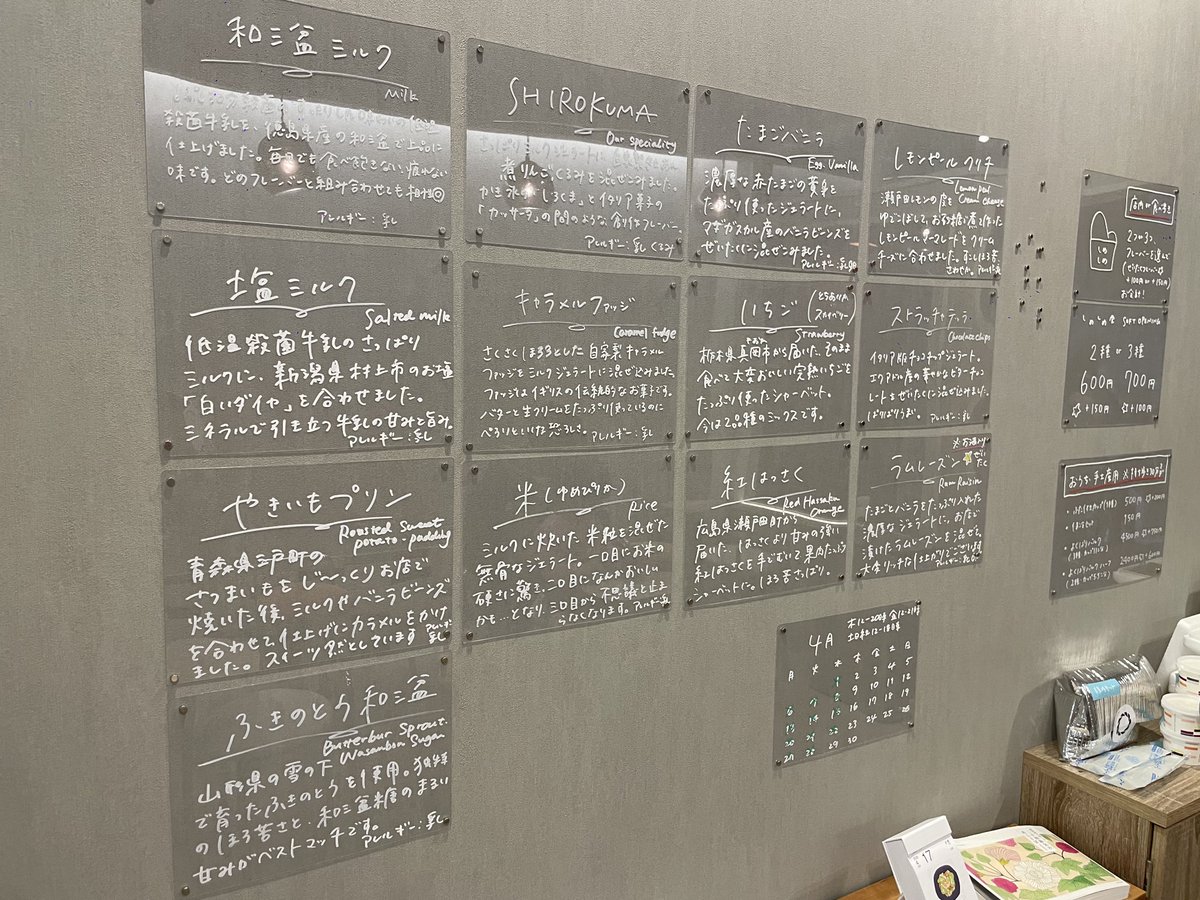 和三盆ミルク
milk
殺菌牛乳を、徳島県産の和三盆で上品に
仕上げました。毎日でも食べ飽きない、疲れない
味です。どのフレーバーと組み合わせても相性◎
アレルギー：乳
SHIROKUMA
Our speciality
さっぱりミルクジェラートに
煮りんご、くるみを混ぜこみました。
かき氷の「しろくま」とイタリア菓子の
「カッサータ」の間のような、創作フレーバー。
アレルギー：乳 くるみ
たまごバニラ
Egg Vanilla
濃厚な赤たまごの黄身を
たっぷり使ったジェラートに、
マダガスカル産のバニラビーンズを
ぜいたくに混ぜこみました。
アレルギー：乳 卵
レモンピール クリチ
Lemon peel Cream cheese
瀬戸田レモンの皮を
ゆでこぼして、お砂糖と煮て作った
レモンピールマーマレードをクリーム
チーズに合わせました。
塩ミルク
Salted milk
低温殺菌牛乳のさっぱり
ミルクに、新潟県村上市のお塩
「白いダイヤ」を合わせました。
ミネラルで引き立つ牛乳の甘みと旨み。
アレルギー：乳
キャラメルファッジ
Caramel fudge
さくさくほろほろとした自家製キャラメル
ファッジをミルクジェラートに混ぜ込みました。
ファッジはイギリスの伝統的なお菓子です。
バターと生クリームをたっぷり使っているのに
ぺろりといけな恐ろしさ。アレルギー：乳
いちご（とちあいか スカイベリー）
Strawberry
栃木県真岡市から届いた、そのまま
食べて大変おいしい完熟いちごを
たっぷり使ったシャーベット。
今は2品種のミックスです。
ストラッチャテッラ
Chocolate chips
イタリア版チョコチップジェラート。
エクアドル産の華やかなビターチョコ
レートをぜいたくに混ぜ込みました。
ぱりぱりうま。アレルギー：乳
やきいもプリン
Roasted Sweet
potato-pudding
青森県三戸町の
さつまいもをじ〜っくりお店で
焼いた後、ミルクやバニラビーンズ
を合わせて、仕上げにカラメルをかけ
ました。スイーツ然としています アレルギー 乳
米（ゆめぴりか）
rice
ミルクに炊いた米粒を混ぜた
無骨なジェラート。一口目にお米の
硬さに驚き、二口目になんかおいしい
かも…となり、三口目から不思議と止ま
らなくなります。アレルギー：乳
紅はっさく
Red Hassaku
Orange
広島県瀬戸田町から
届いた、はっさくより甘みの強い
紅はっさくを手でむいて果肉たっぷり
シャーベットに。ほろ苦さっぱり。
ラムレーズン
※お酒入り
ぜいたく
Rum Raisin
たまごとバニラをたっぷり入れた
濃厚なジェラートに、お店で
漬けたラムレーズンを混ぜた
大人リッチな1品
ふきのとう和三盆
Butterbur Sprout
Wasanbon Sugar
山形県の雪の下
で育ったふきのとうを使用。独特
のほろ苦さと、和三盆糖のまるい
甘みがベストマッチです。
アレルギー：乳
4月
木12-20時 金12-21時
土日祝12-18時
月 火 水 木 金 土 日
1 2 3 4 5
6 7 8 9 10 11 12
13 14 15 16 17 18 19
20 21 22 23 24 25 26
27 28 29 30
2つか3つ、
フレーバーを選んで
+100円 or +150円
SOFT OPENING
2種 or 3種
600円 700円
+150円 +100円
500円
17